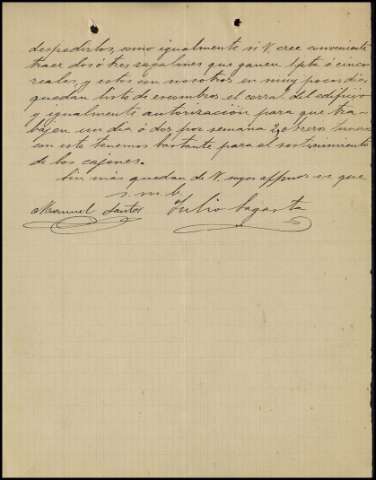 despedirlos, como igualmente si V. cree conveniente
traer dos ó tres zagalines que ganen 1 pta ó cinco
reales, y estos con nosotros en muy pocos dias
quedan listo de escombros el corral del edificio
y igualmente autorización para que tra-
bajen un dia ó dos por semana
con este tenemos bastante para el sostenimiento
de los cajones.
Sin más quedan de V. suyos affmos. ss. que
s. m. b.
Manuel Santos Julio Sagasta